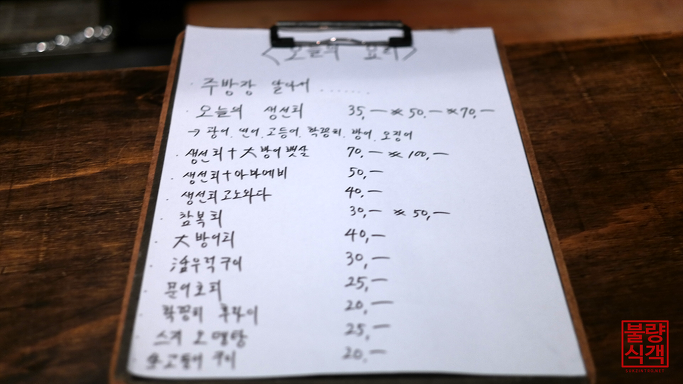 <오늘의 요리>
· 주방장 알아서 .......
· 오늘의 생선회 35,— ※ 50,— ※ 70,—
→ 광어, 연어, 고등어, 학꽁치, 방어, 오징어
· 생선회 + 大방어뱃살 70,— ※ 100,—
· 생선회 + 아마에비 50,—
· 생선회 고노와다 40,—
· 참복회 30,— ※ 50,—
· 大 방어회 40,—
· 우럭구이 30,—
· 문어초회 25,—
· 학꽁치 후라이 20,—
· 스지 오뎅탕 25,—
고등어 구이 20,—
불량식객